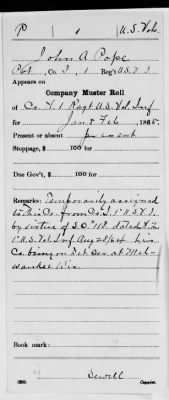 P | 1 | U.S. Vols.
John A Pope
Pvt, Co. I, 1 Reg't U.S.V.I.
Appears on
Company Muster Roll
of Co. F. 1 Regt U.S. Vol. Inf
for Jan & Feb, 1865.
Present or absent present
Stoppage, $ 100 for
Due Gov't, $ 100 for
Remarks: Temporarily assigned
to this Co. from Co. I. 1" U.S.V.I.
by virtue of S.O.
1" U.S. Vol. Inf Aug 28/64 his
Co. being on Det. Ser. at Mil-
waukee Wis
Book mark:
Sewell
(358)
Copyist.